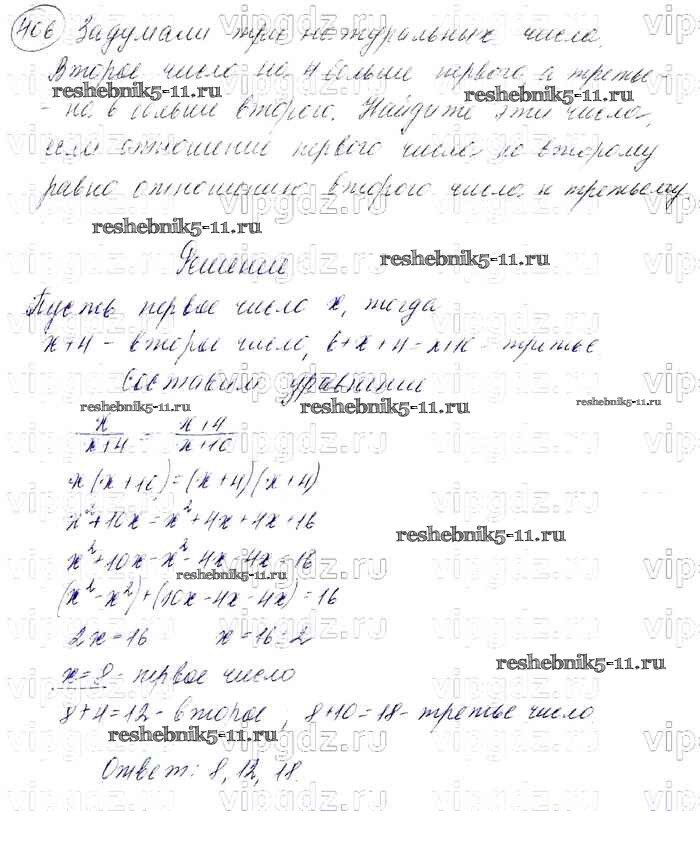 406 Задумали три натуральных числа.
Второе число на 4 больше первого а третье -
- на 6 больше второго. Найдите эти числа,
если отношение первого числа ко второму
равно отношению второго числа к третьему
Решение
Пусть первое число x, тогда
x+4 - второе число, 6+x+4 = x+10 - третье
Составим уравнение
x/x+4 = x+4/x+10
x(x+10)=(x+4)(x+4)
x²+10x=x²+4x+4x+16
x²+10x-x²-4x-4x=16
(x²-x²)+(10x-4x-4x)=16
2x=16 x=16:2
x=8 - первое число
8+4=12 - второе ; 8+10=18 - третье число
Ответ: 8, 12, 18.
vipgdz.ru
reshebnik5-11.ru